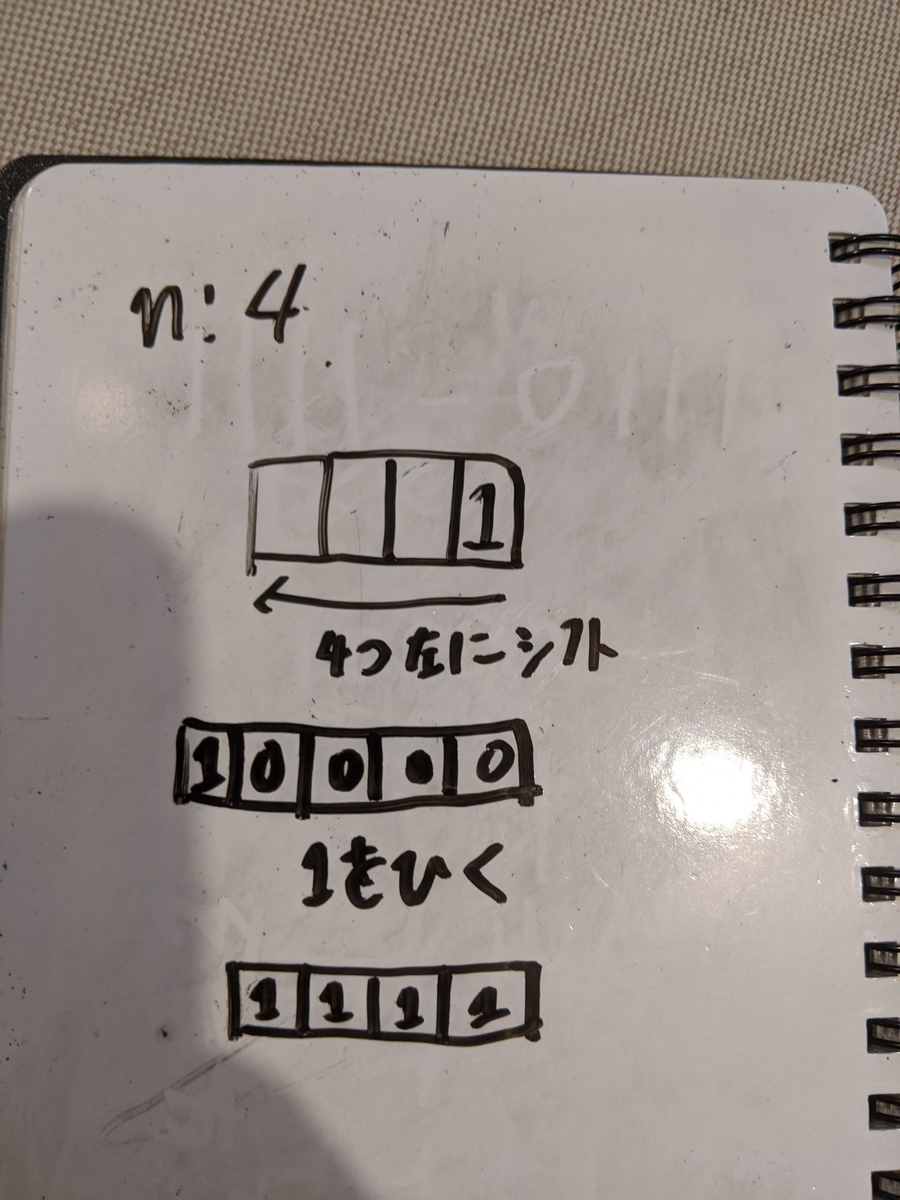 n: 4
1
4つ左にシフト
1 0 0 0 0
1をひく
1 1 1 1